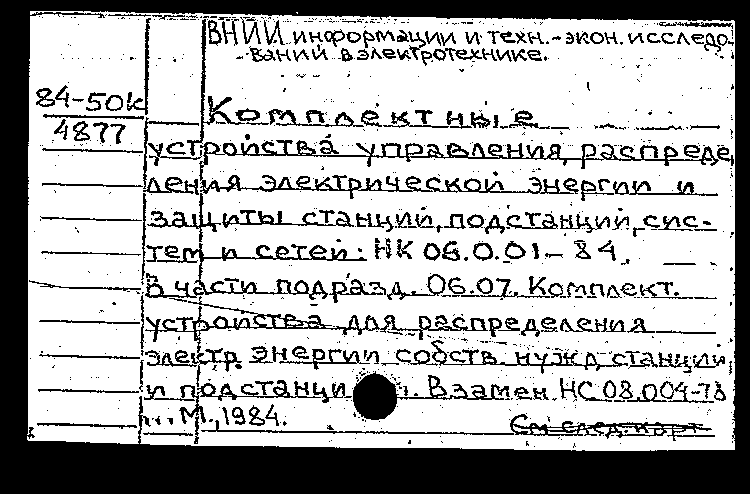 ВНИИ информации и техн.-экон. исследо
ваний в электротехнике.
84-50к
4877
Комплектные
устройства управления, распреде
ления электрической энергии и
защиты станций, подстанций, сис-
тем и сетей: НК 06.0.01-84.
В части подразд. 06.07. Комплект.
устройства для распределения
электр. энергии собств. нужд станции
и подстанци . Взамен НС 08.004-78
...М., 1984.
См след. карт